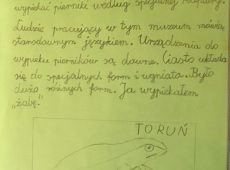 wypiekać pierniki według specjalnej
Ludzie pracujący w tym muzeum mówią
starodawnym językiem. Urządzenia do
wypieku pierników są dawne. Ciasto wkłada
się do specjalnych form i ugniata. Było
dużo różnych form. Ja wypiekałem
"żabę".
TORUŃ